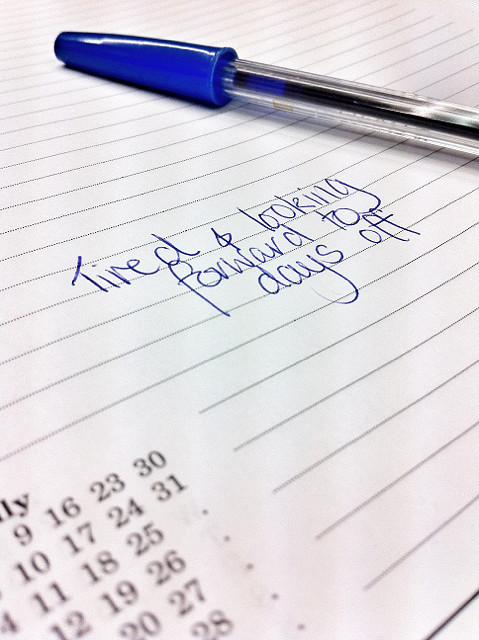 Tired & looking
forward to
days off
ly
9 16 23 30
10 17 24 31
4 11 18 25
12 19 26
20 27
28